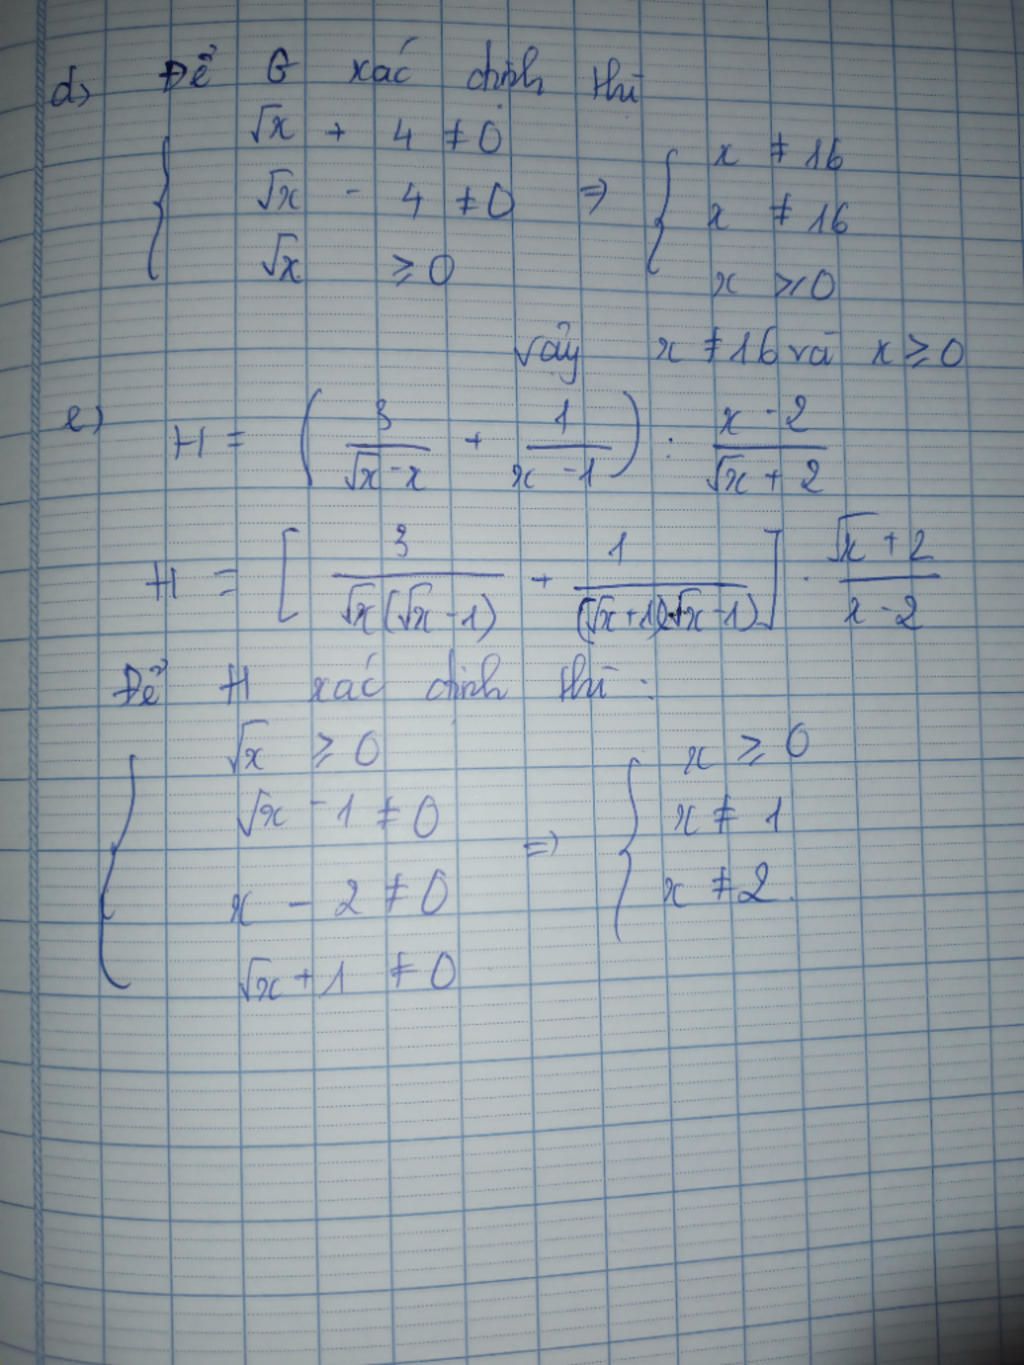 d) Để G xác định thì
{ √x + 4 ≠ 0
√x - 4 ≠ 0 ⇒ { x ≠ 16
x ≠ 16
√x ≥ 0 x ≥ 0
Vậy x ≠ 16 và x ≥ 0
e) H = ( 3/(√x - x) + 1/(x - 1) ) : (x - 2)/(√x + 2)
H = [ 3/(√x(√x - 1)) + 1/((√x + 1)(√x - 1)) ] . (√x + 2)/(x - 2)
Để H xác định thì :
{ √x ≥ 0 { x ≥ 0
√x - 1 ≠ 0 ⇒ x ≠ 1
x - 2 ≠ 0 x ≠ 2.
√x + 1 ≠ 0